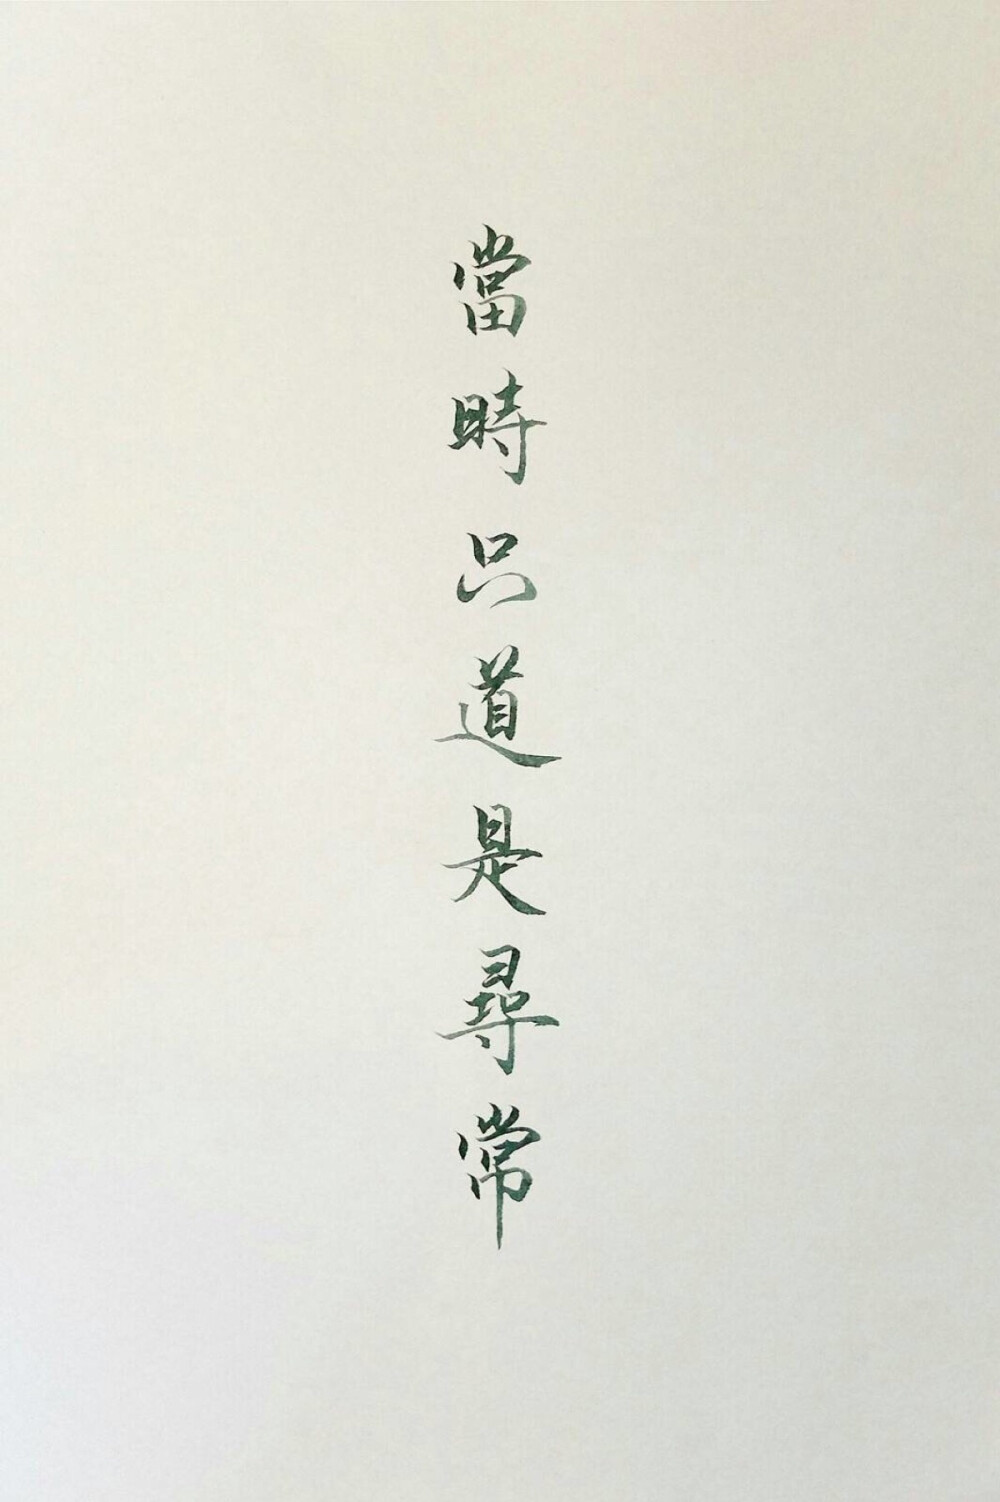 當時只道是尋常